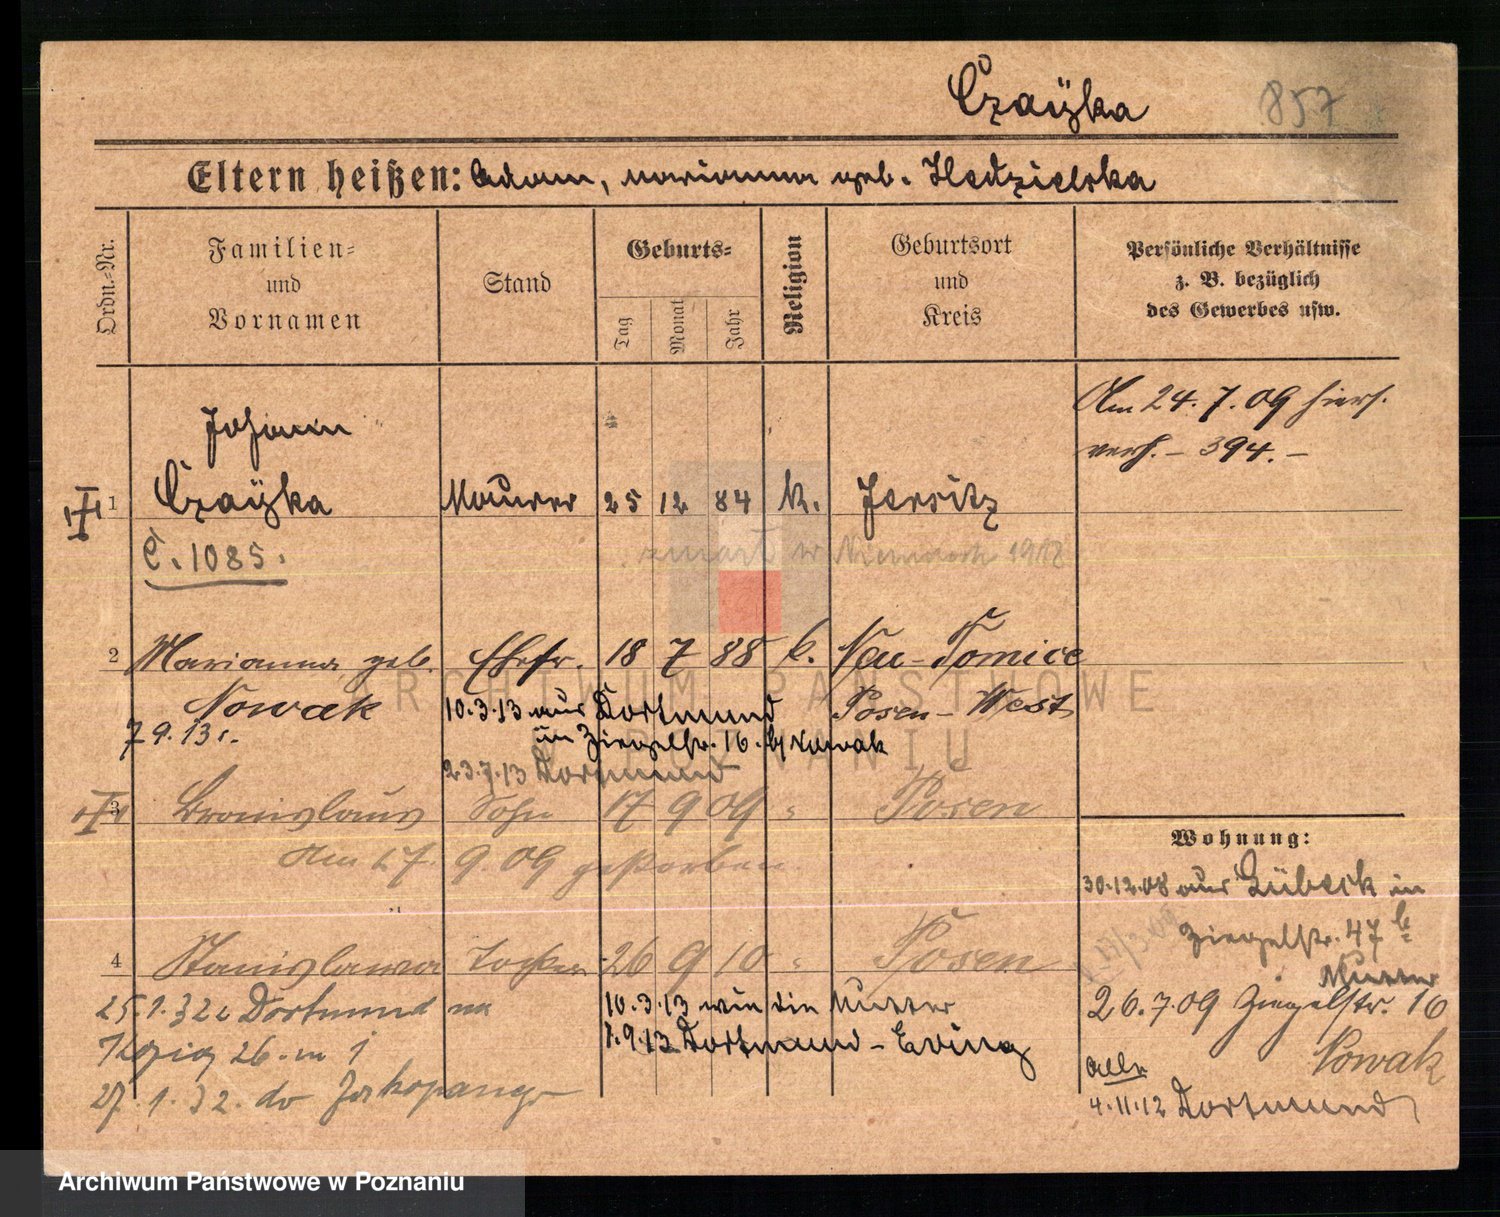 Czaÿka
857
Eltern heißen: Adam, Marianna geb. Hedzielska
Ordn.-Nr.
Familien-
und
Vornamen
Stand
Geburts-
Tag
Monat
Jahr
Religion
Geburtsort
und
Kreis
Persönliche Verhältnisse
z. B. bezüglich
des Gewerbes usw.
Am 24.7.09 hier.
verh. – 394. –
Johann
1 Czaÿka Maurer 25 12 84 K. Jersitz
C. 1085.
zmarł w 1918
2 Marianna geb. Ehefr. 18 7 88 k. Neu-Tomice
Nowak Posen-West
7.9.13
10.3.13 aus Dortmund
in Ziegelstr. 16 b/ Nowak
23.7.13 Dortmund
3 Bronislaus Sohn 17 9 09 " Posen
Am 27. 9. 09 gestorben.
4 Stanislawa Tochter 26 9 10 " Posen
10.3.13 wie die Mutter
1.9.13 Dortmund-Eving
25.1.32 z Dortmund na
26. m 1
27.1.32. do Zakopanego
Wohnung:
30.12.08 aus Lübeck in
Ziegelstr. 47 b
Mutter
26.7.09 Ziegelstr. 16
Nowak
alle
4.11.12 Dortmund
ARCHIWUM PAŃSTWOWE
W POZNANIU
Archiwum Państwowe w Poznaniu